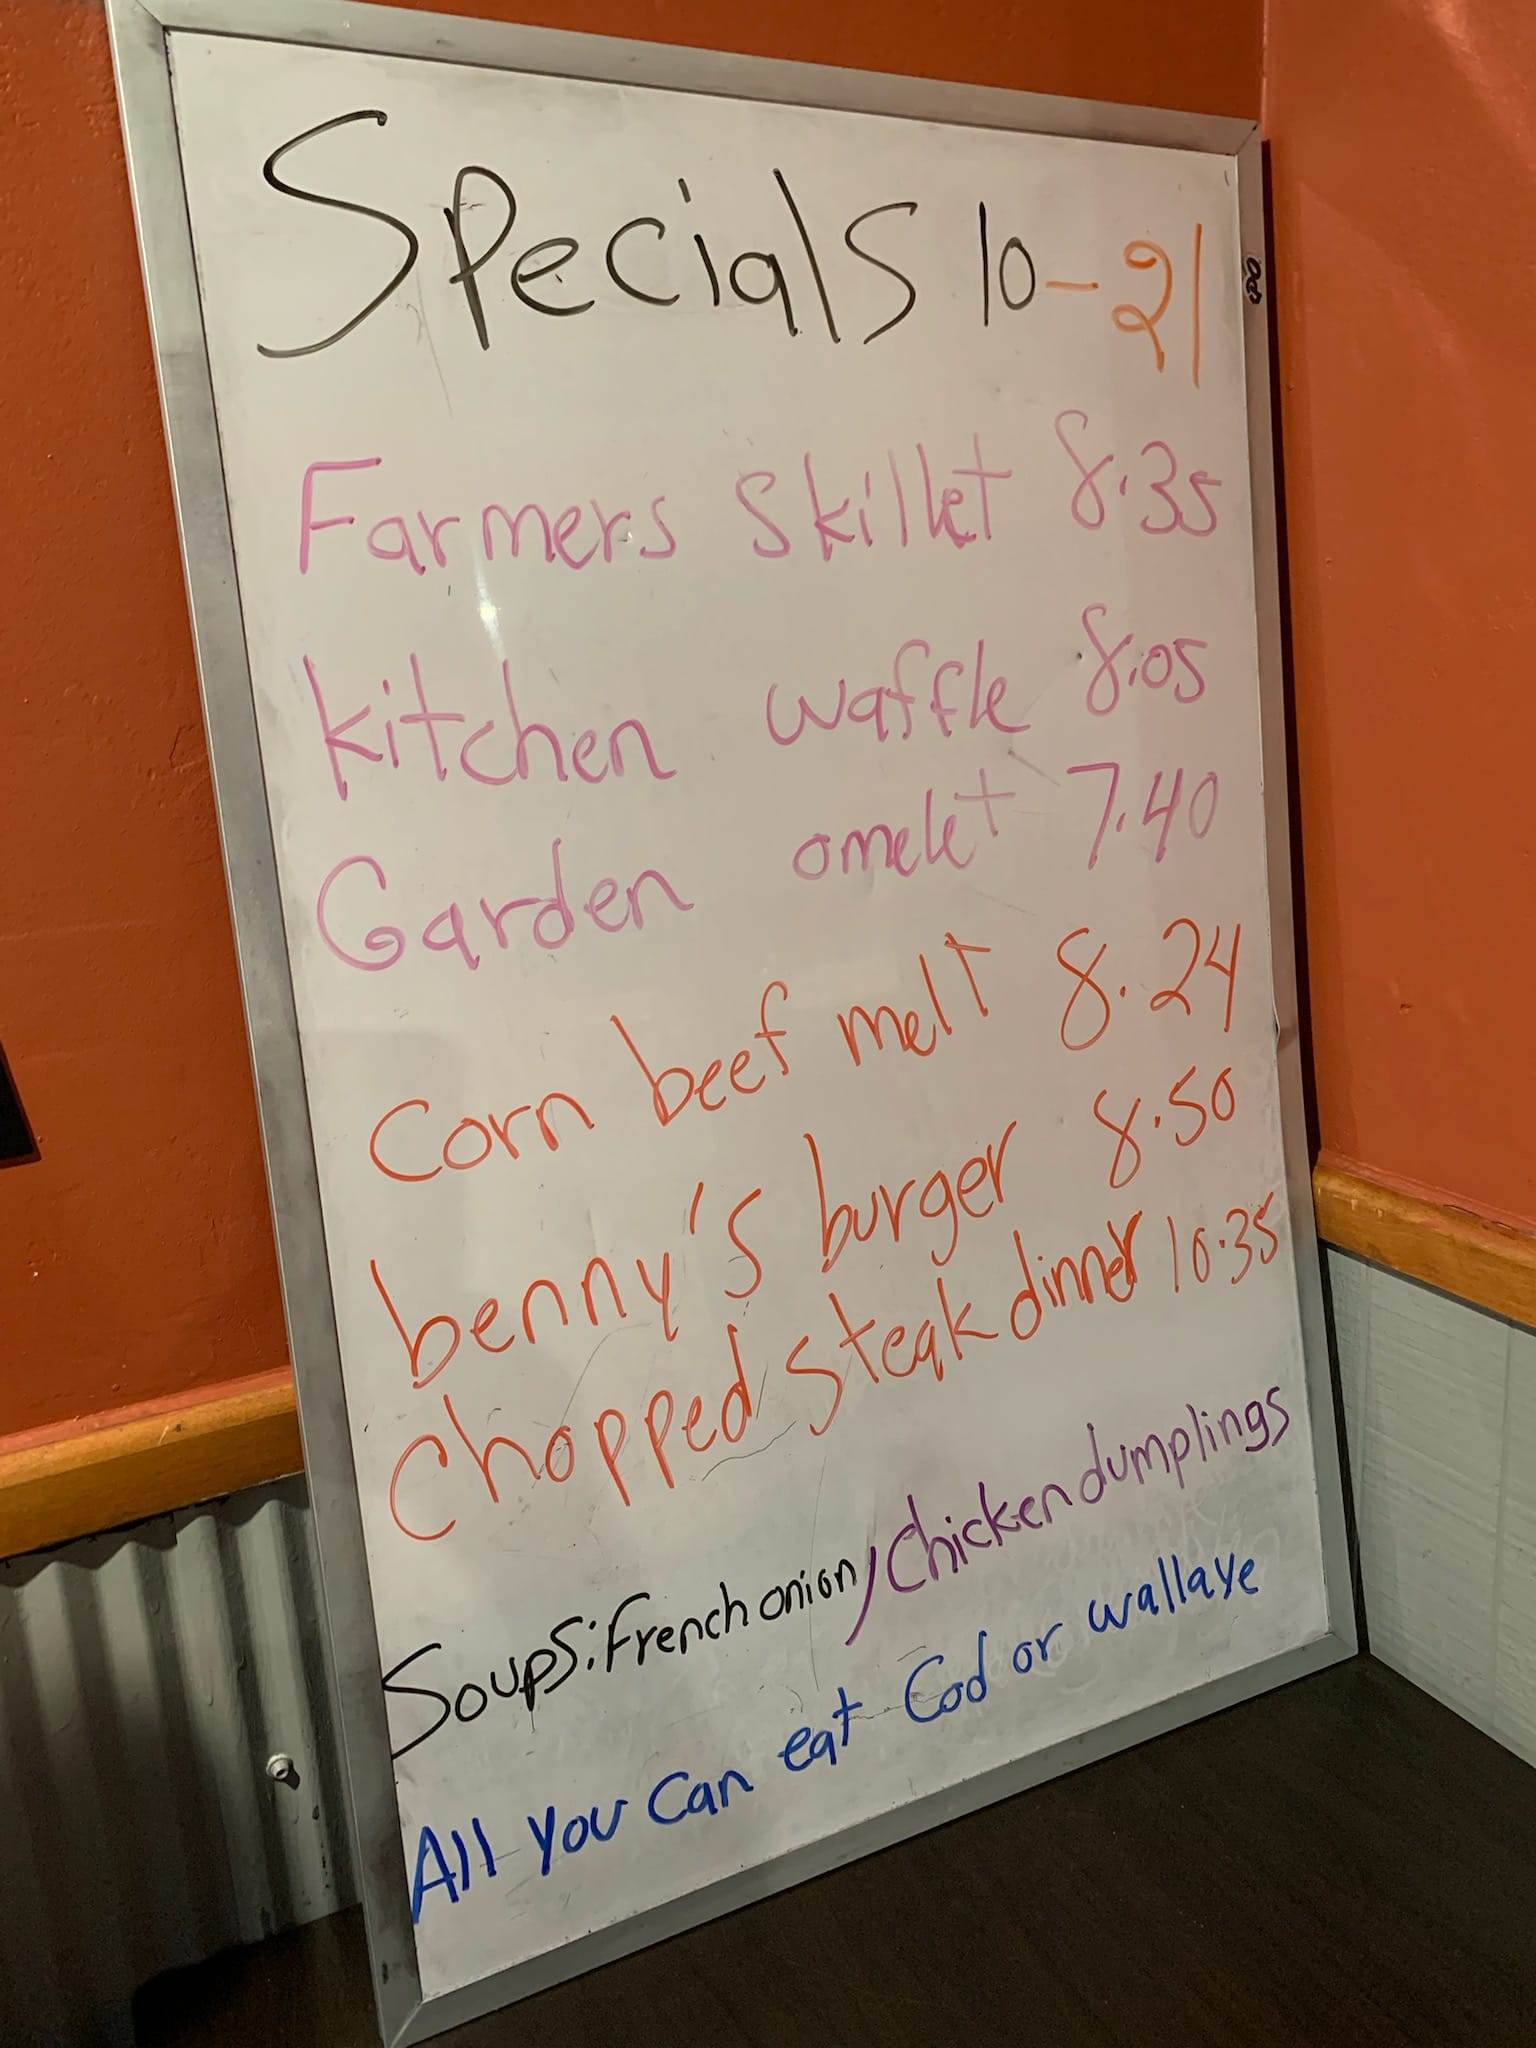 Specials 10-21
Farmers skillet 8.35
kitchen waffle 8.05
Garden omelet 7.40
Corn beef melt 8.24
benny's burger 8.50
Chopped steak dinner 10.35
Soups: french onion/Chicken dumplings
All you can eat Cod or wallaye